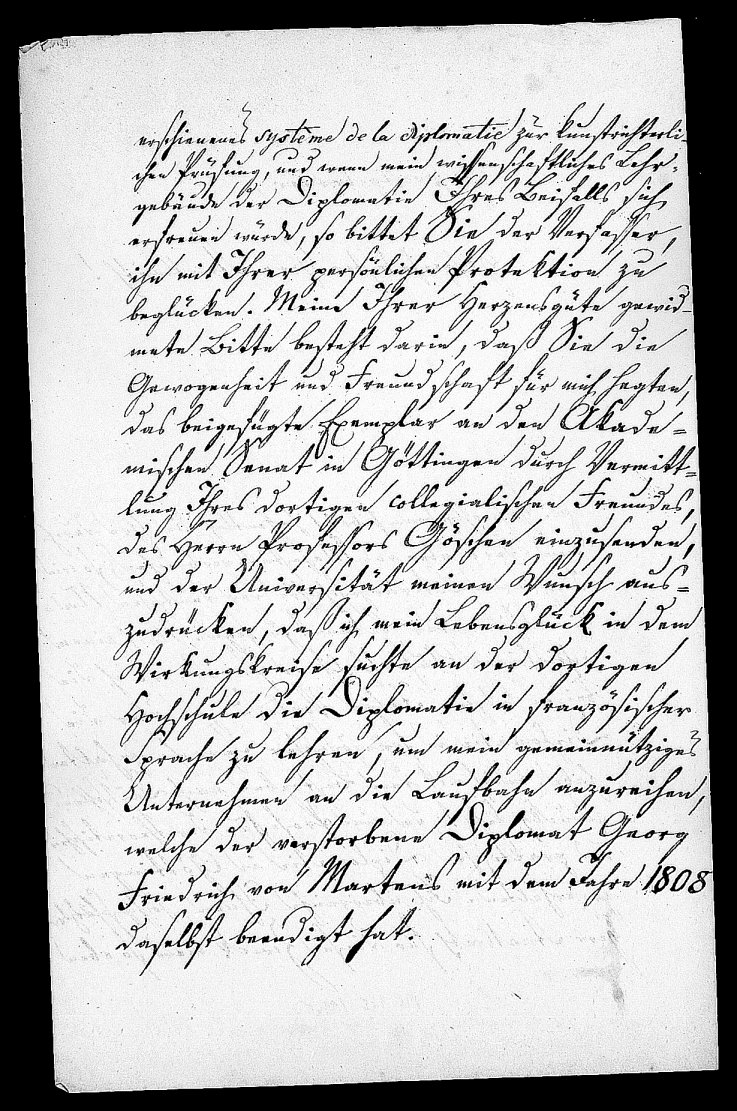 erschienenes système de la diplomatie zur kunstrichterli-
chen Prüfung, und wenn mein wissenschaftliches Lehr-
gebäude der Diplomatie Ihres Beifalls sich
erfreuen würde, so bittet Sie der Verfasser,
ihn mit Ihrer persönlichen Protektion zu
beglücken. Meine Ihrer Herzensgüte gewid-
mete Bitte besteht darin, daß Sie die
Gewogenheit und Freundschaft für mich hegten,
das beigefügte Exemplar an den Akade-
mischen Senat in Göttingen durch Vermitt-
lung Ihres dortigen collegialischen Freundes,
des Herrn Professors Göschen einzusenden,
und der Universität meinen Wunsch aus-
zudrücken, daß ich mein Lebensglück in dem
Wirkungskreise suchte an der dortigen
Hochschule die Diplomatie in französischer
Sprache zu lehren, um mein gemeinnütziges
Unternehmen an die Laufbahn anzureihen,
welche der verstorbene Diplomat Georg
Friedrich von Martens mit dem Jahre 1808
daselbst beendigt hat.